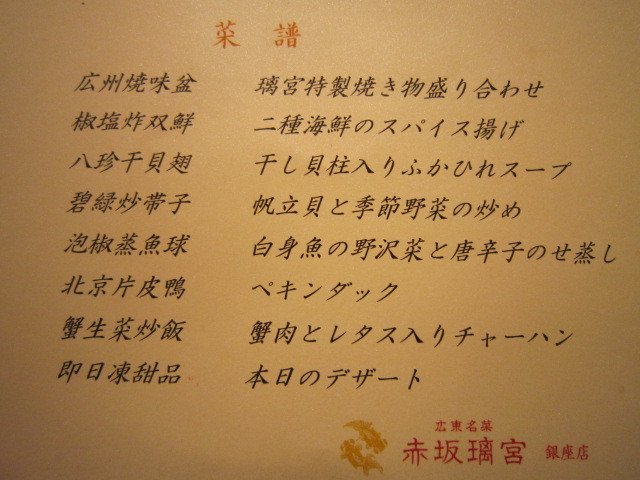 菜譜
広州焼味盆 璃宮特製焼き物盛り合わせ
椒塩炸双鮮 二種海鮮のスパイス揚げ
八珍干貝翅 干し貝柱入りふかひれスープ
碧緑炒帯子 帆立貝と季節野菜の炒め
泡椒蒸魚球 白身魚の野沢菜と唐辛子のせ蒸し
北京片皮鴨 ペキンダック
蟹生菜炒飯 蟹肉とレタス入りチャーハン
即日凍甜品 本日のデザート
広東名菜
赤坂璃宮 銀座店